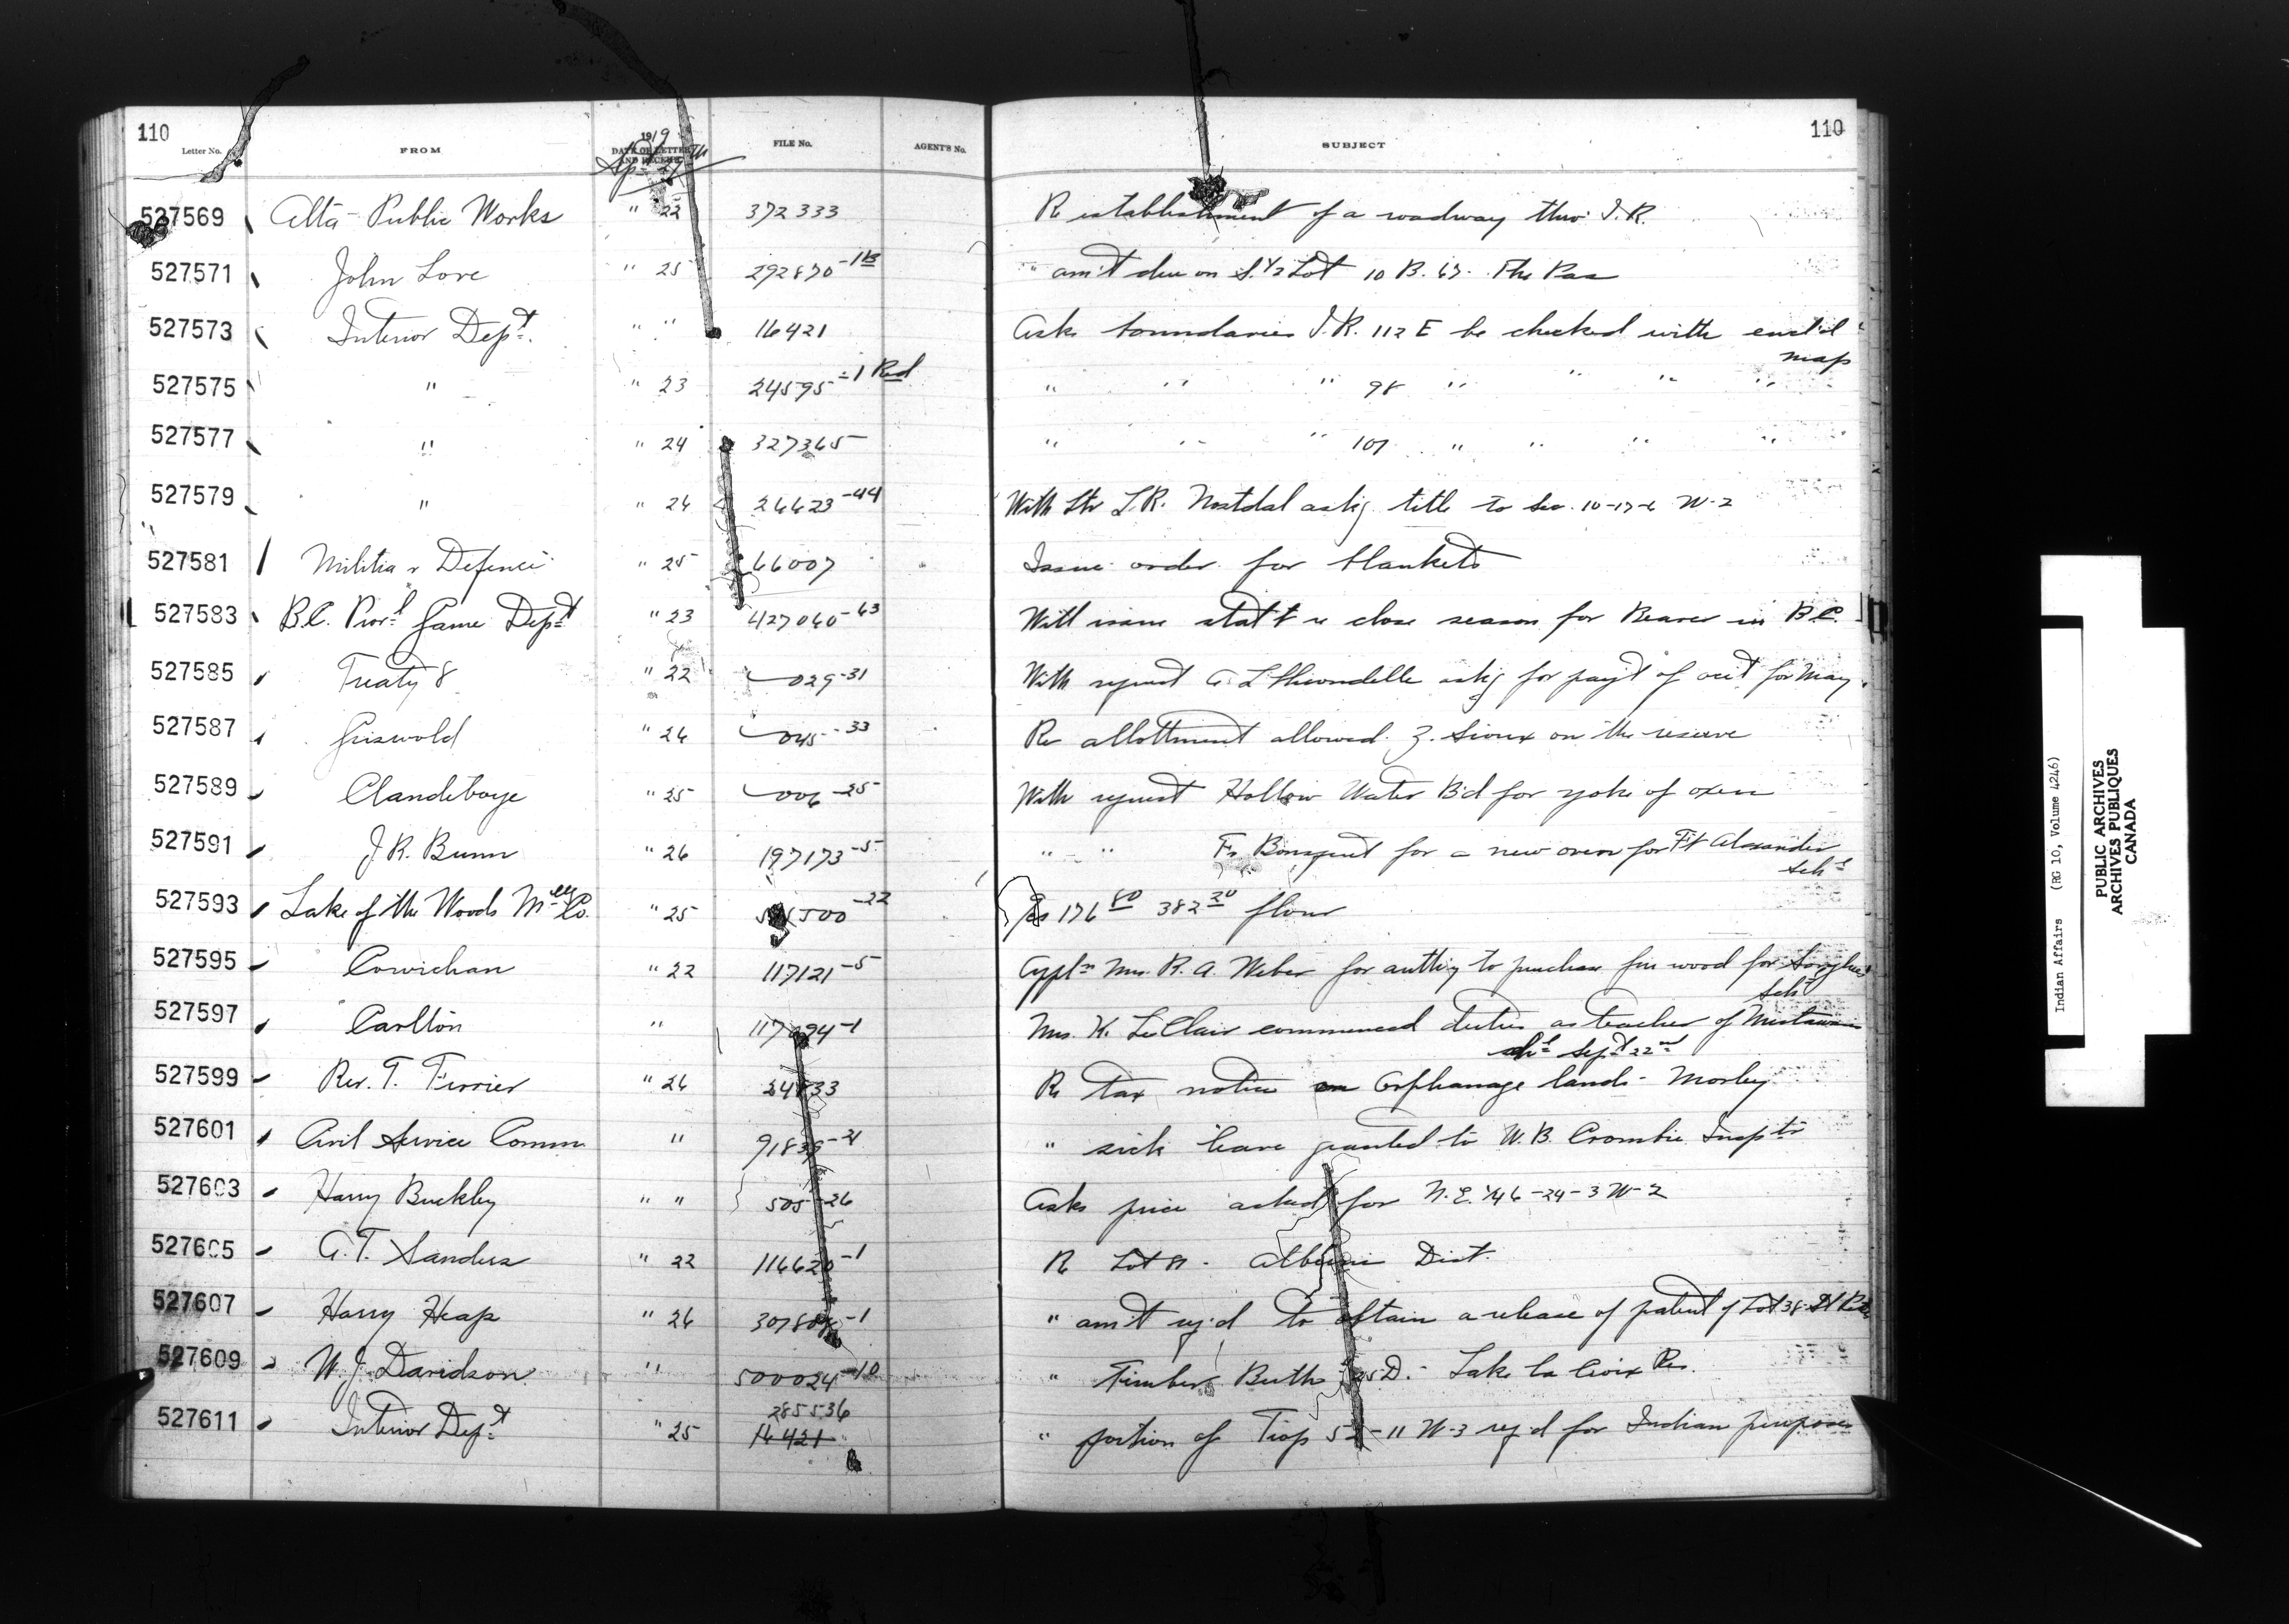 110
110
Letter No. FROM 1919 DATE OF LETTER AND RECEIPT FILE No. AGENT'S No. SUBJECT
Sept 27th
527569 Alta Public Works " 22 372333 Re establishment of a roadway thro' I.R.
527571 John Love " 25 292870 " am't due on S. 1/2 Lot 10 B. 67. The Pas
527573 Interior Dept. " " 16421 Asks boundaries I.R. 112 E be checked with encl'd
map
527575 " " 23 24595-1 Red " " " 98 " " " "
527577 " " 24 327365 " " " 107 " " " "
527579 " " 24 26623-44 With ltr L.R. Nostdal ask'g title to Sec. 10-17-6 W-2
527581 Militia & Defence " 25 66007 Issue order for blankets
527583 B.C. Prov'l Game Dept " 23 427060-63 Will issue stat't re close season for Beaver in B.C.
527585 Treaty 8 " 22 029-31 With request ask'g for pay't of acct for May
527587 Griswold " 26 045-33 Re allotment allowed Z. Sioux on the reserve
527589 Clandeboye " 25 006-25 With request Hollow Water B'd for yoke of oxen
527591 J.R. Bunn " 26 197173-5 " " Fr. Bousquet for a new oven for Ft Alexander
Sch'l
527593 Lake of the Woods M'llg Co. " 25 500-22 176 80 382 20 flour
527595 Cowichan " 22 117121-5 Appl'n Mrs. R. A. Weber for auth'y to purchase fire wood for Songhees
Sch'l
527597 Carlton " -1 Mrs. K. LeClair commenced duties as teacher of Mistawasis
sch'l Sept 22nd
527599 Rev. T. Ferrier " 26 24833 Re tax notice on Orphanage lands - Morley
527601 Civil Service Comm. " 91839-21 " sick leave granted to W.B. Crombie Insp'tr
527603 Harry Buckley " " 505-26 Asks price asked for N.E. 1/4 6-24-3 W-2
527605 G.T. Sanders " 22 116620-1 Re Lot Alberni Dist.
527607 Harry Heap " 26 -1 " am't req'd to obtain a release of patent of Lot 38 St Peters
527609 W.J. Davidson " 500024-10 " Timber Berth D. - Lake la Croix Res.
285536
527611 Interior Dept " 25 16421 " portion of T'sp 52-11 W-3 req'd for Indian purposes
Indian Affairs (RG 10, Volume 4246)
PUBLIC ARCHIVES
ARCHIVES PUBLIQUES
CANADA